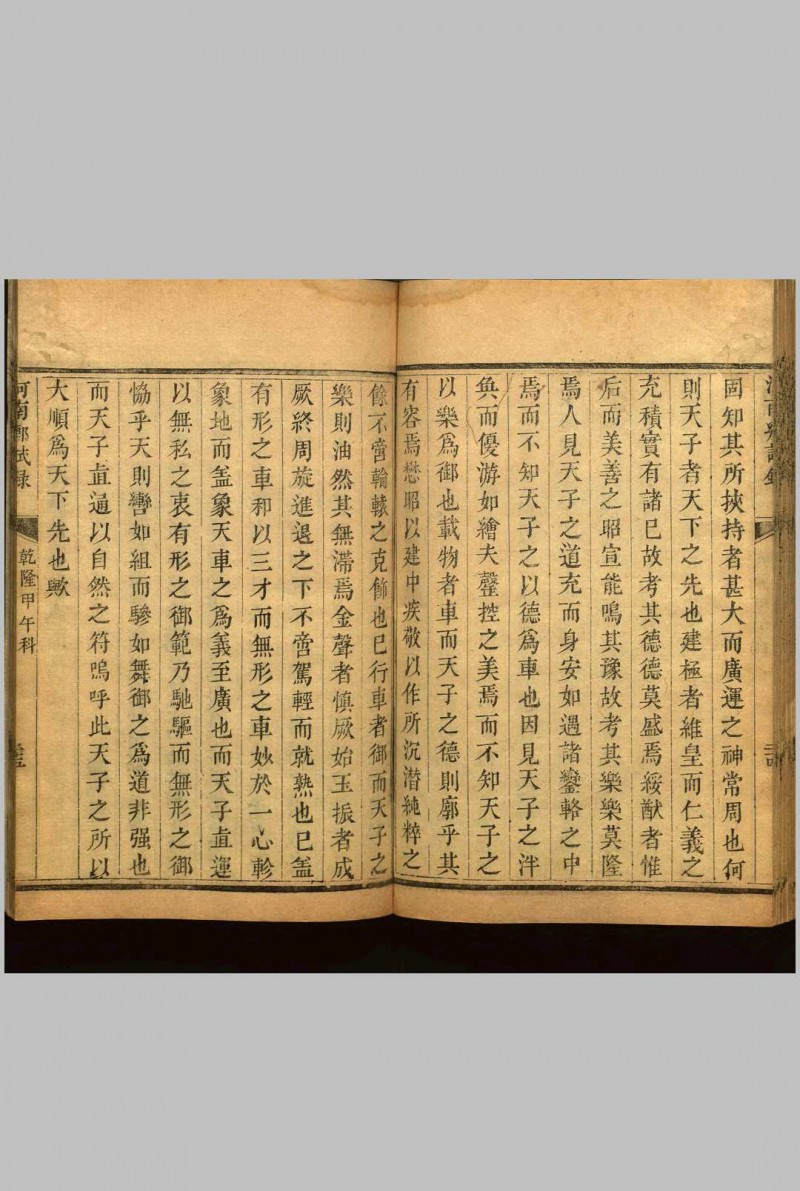 固知其所挾持者甚大而廣運之神常周也何
則天子者天下之先也建極者維皇而仁義之
充積實有諸已故考其德德莫盛焉綏猷者惟
后而美善之昭宣能鳴其豫故考其樂樂莫隆
焉人見天子之道充而身安如遇諸鑾輅之中
焉而不知天子之以德爲車也因見天子之泮
奐而優游如繪夫罄控之美焉而不知天子之
以樂爲御也載物者車而天子之德則廓乎其
有容焉懋昭以建中疾敬以作所沉潜純粹之
餘不啻輪轅之克飾也已行車者御而天子之
樂則油然其無滯焉金聲者慎厥始玉振者成
厥終周旋進退之下不啻駕輕而就熟也已葢
有形之車和以三才而無形之車妙於一心軫
象地而葢象天車之爲義至廣也而天子直運
以無私之衷有形之御範乃馳驅而無形之御
恊乎天則轡如組而驂如舞御之爲道非强也
而天子直適以自然之符嗚呼此天子之所以
大順爲天下先也歟
河南鄉試錄
乾隆甲午科